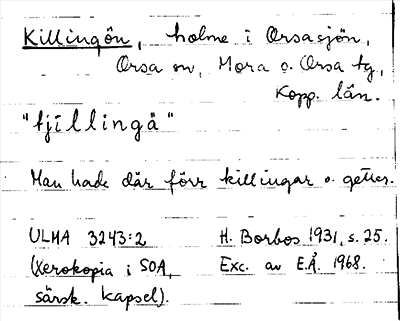 Killingön, holme i Orsasjön,
Orsa sn, Mora o. Orsa tg,
Kopp. län.
"tjíllingä"
Man hade där förr killingar o. getter.
ULMA 3243:2 H. Borbos 1931, s. 25.
(Xerokopia i SOA, Exc. av E.Å. 1968.
särsk. kapsel).